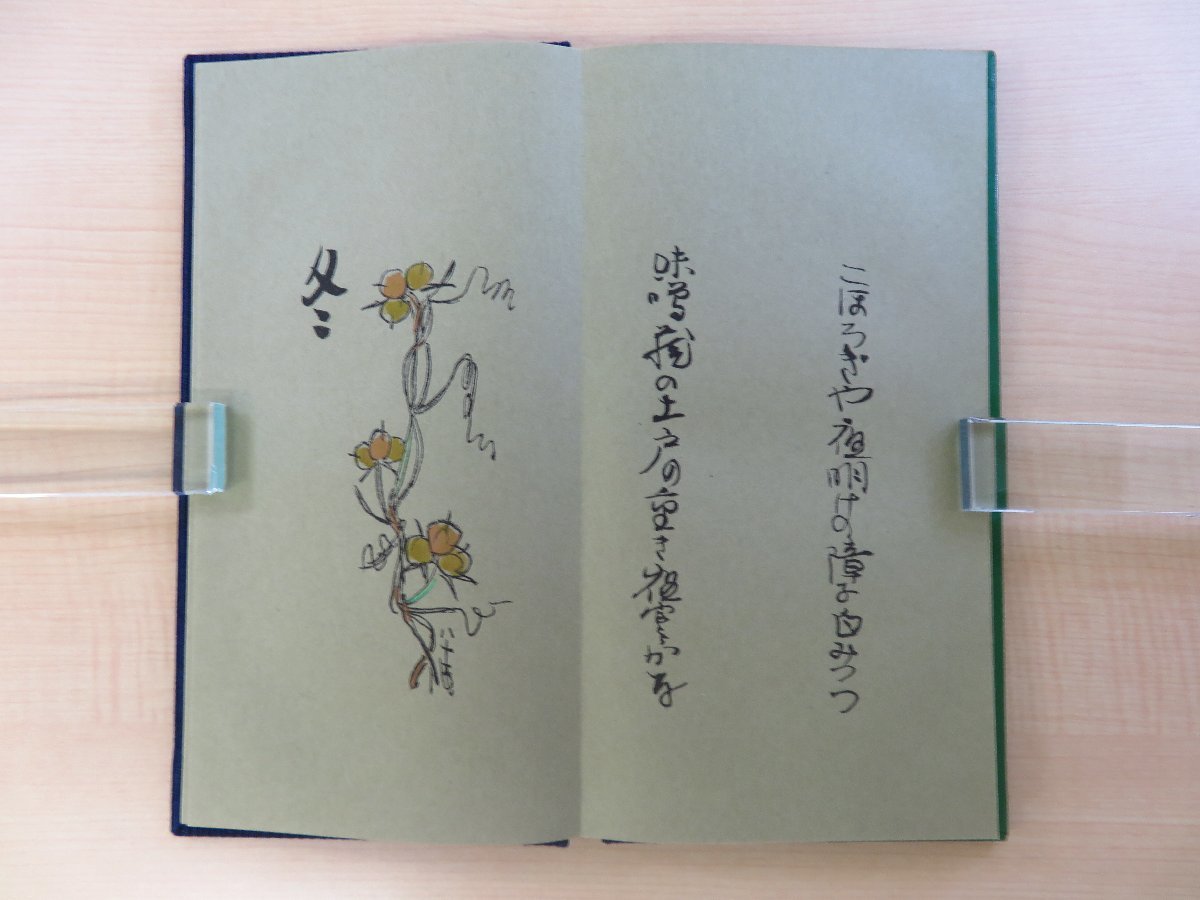 こほろぎや夜明けの障子白みつつ
味噌蔵の土戸の重き夜寒かな
冬